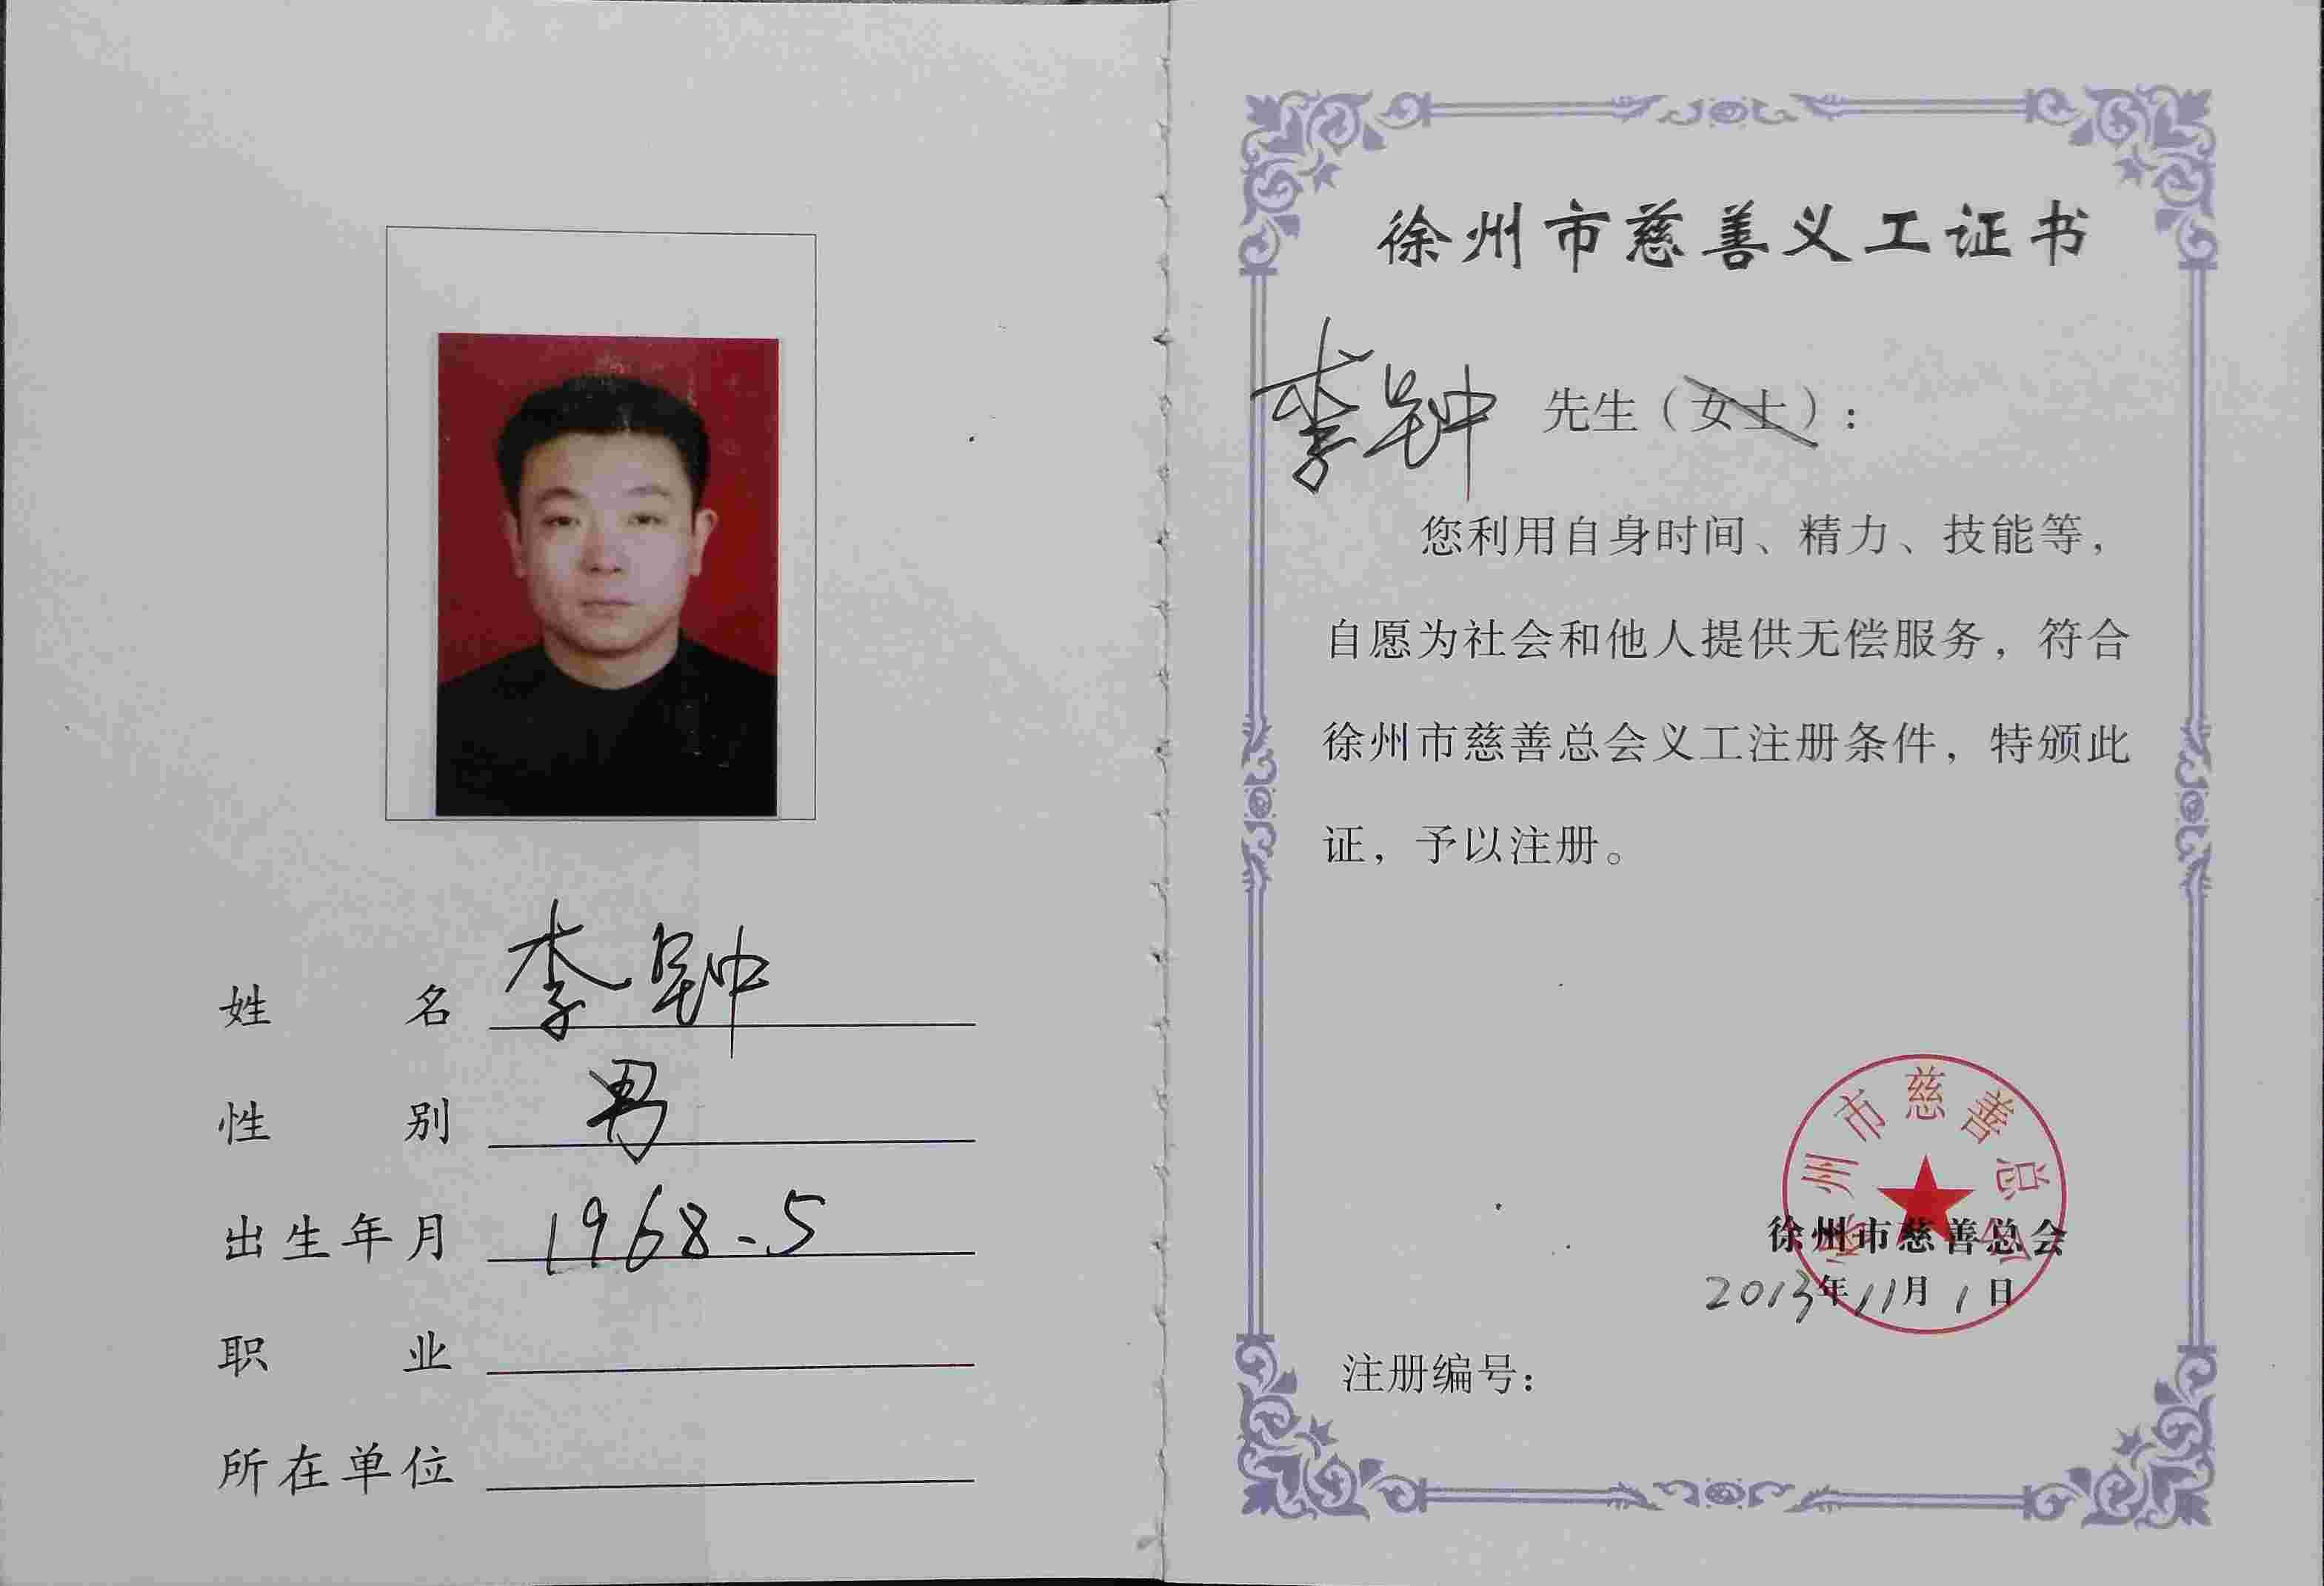 姓名 李钟
性别 男
出生年月 1968.5
职业
所在单位
徐州市慈善义工证书
李钟 先生（女士）：
您利用自身时间、精力、技能等，
自愿为社会和他人提供无偿服务，符合
徐州市慈善总会义工注册条件，特颁此
证，予以注册。
徐州市慈善总会
徐州市慈善总会
2013年11月1日
注册编号：